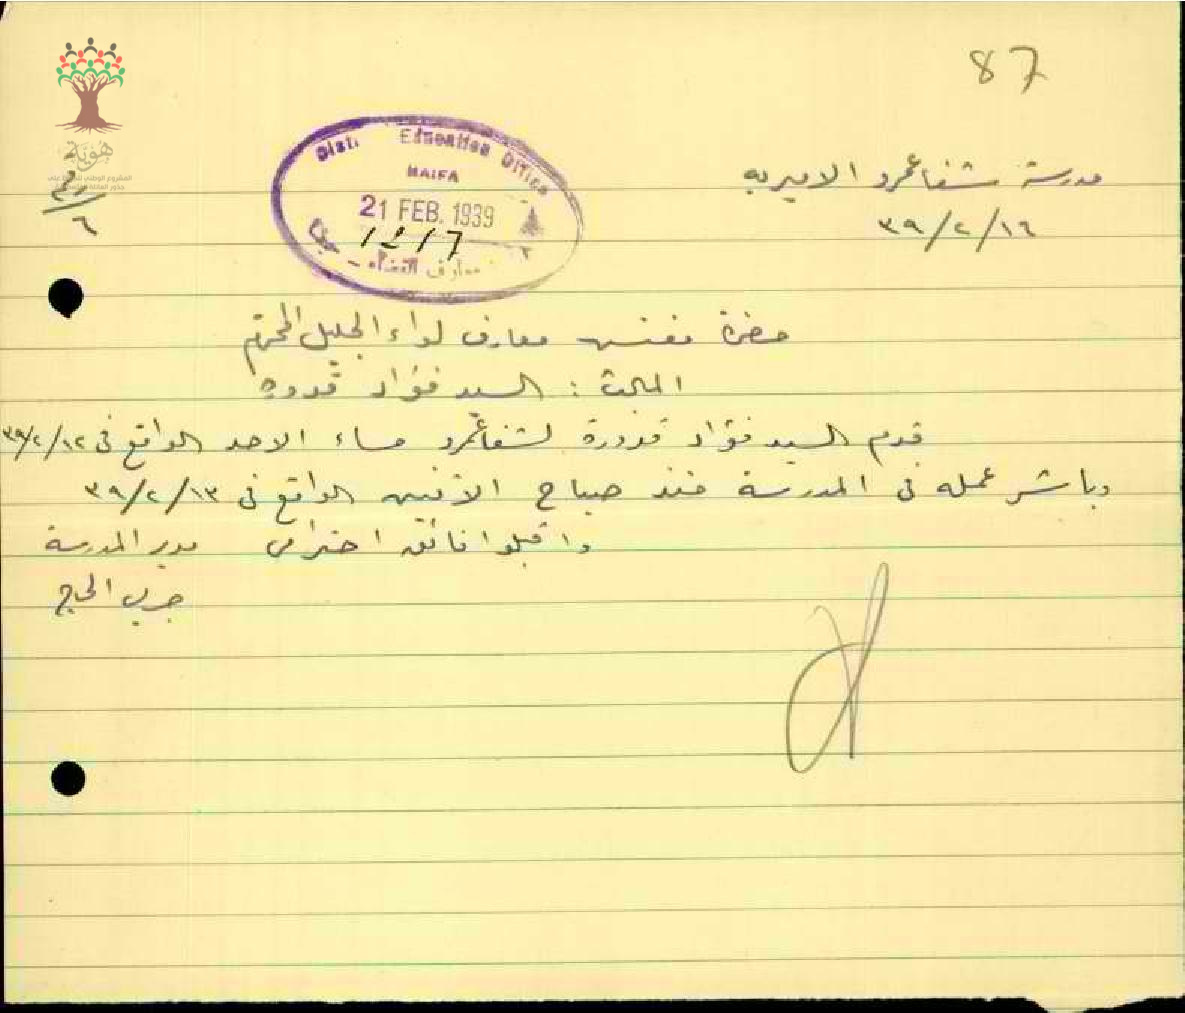 87
هوية
المشروع الوطني للحفاظ على
جذور العائلة الفلسطينية
رقم
٦
Dist. Education Office
HAIFA
21 FEB. 1939
1217
معارف القضاء - حيفا
مدرسة شفاعمرو الاميريه
٣٩/٢/١٦
حضرة مفتش معارف لواء الجليل المحترم
السيد فؤاد قدوره
قدم السيد فؤاد قدورة لشفاعمرو مساء الاحد الواقع في ٣٩/٢/١٢
وباشر عمله في المدرسة منذ صباح الاثنين الواقع في ٣٩/٢/١٣
واقبلوا فائق احترامي مدير المدرسة
الحاج